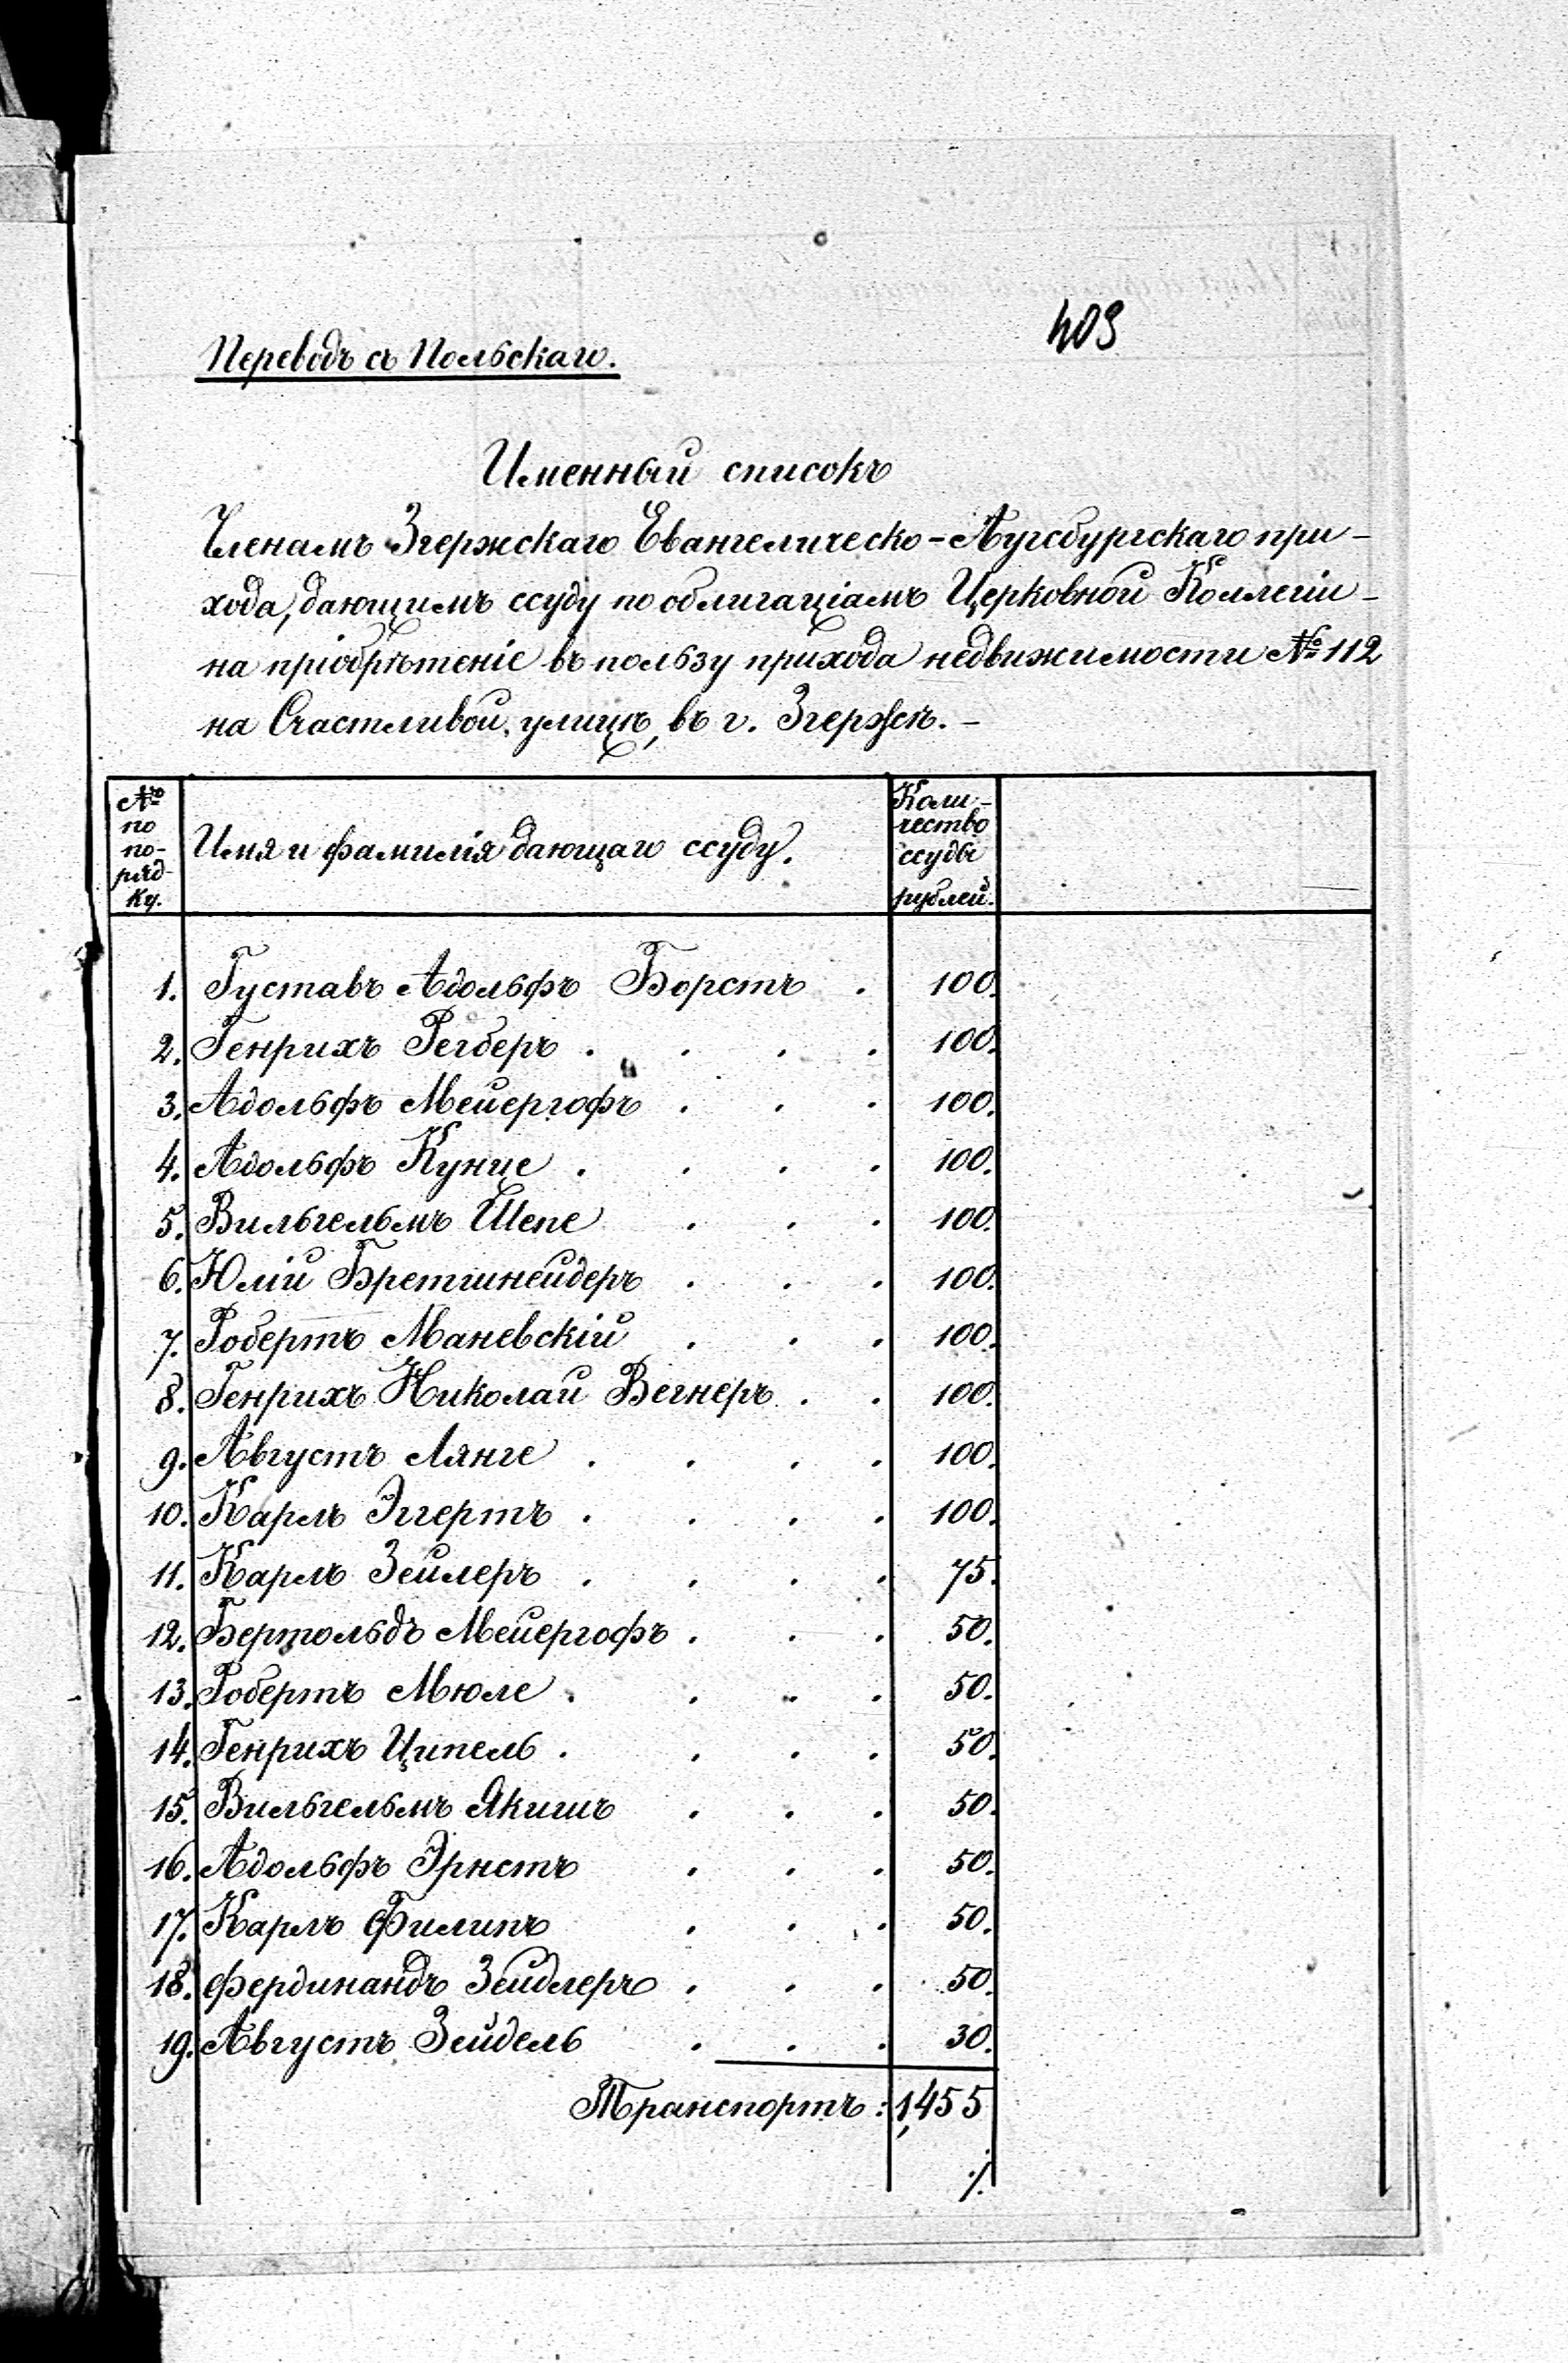 409
Переводъ съ Польскаго.
Именный списокъ
Членамъ Згержскаго Евангелическо-Аугсбургскаго при-
хода, дающимъ ссуду по облигаціямъ Церковной Коллегіи -
на пріобрѣтеніе въ пользу прихода недвижимости № 112
на Счастливой улицѣ, въ г. Згержѣ. -
№ по по-ряд-ку. Имя и фамилія дающаго ссуду. Коли-чество ссуды рублей.
1. Густавъ Адольфъ Борстъ . 100.
2. Генрихъ Регберъ . . . . 100.
3. Адольфъ Мейергофъ . . . 100.
4. Адольфъ Кунце . . . . 100.
5. Вильгельмъ Щепе . . . 100.
6. Юлій Бретшнейдеръ . . . 100.
7. Робертъ Маневскій . . . 100.
8. Генрихъ Николай Вегнеръ . . 100.
9. Августъ Лянге . . . . 100.
10. Карлъ Эггертъ . . . . 100.
11. Карлъ Зейлеръ . . . . 75.
12. Бертольдъ Мейергофъ . . . 50.
13. Робертъ Мюле . . . . 50.
14. Генрихъ Ципель . . . . 50.
15. Вильгельмъ Якишъ . . . 50.
16. Адольфъ Эрнстъ . . . 50.
17. Карлъ Филипъ . . . 50.
18. Фердинандъ Зейдлеръ . . . 50.
19. Августъ Зейдель . . . 30.
Транспортъ: 1,455
./.